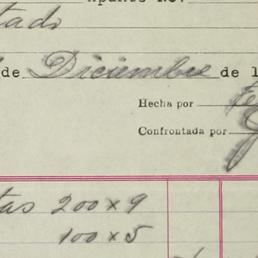 tado
de Diciembre de 1
Hecha por
Confrontada por
tas 200 x 9
100 x 5